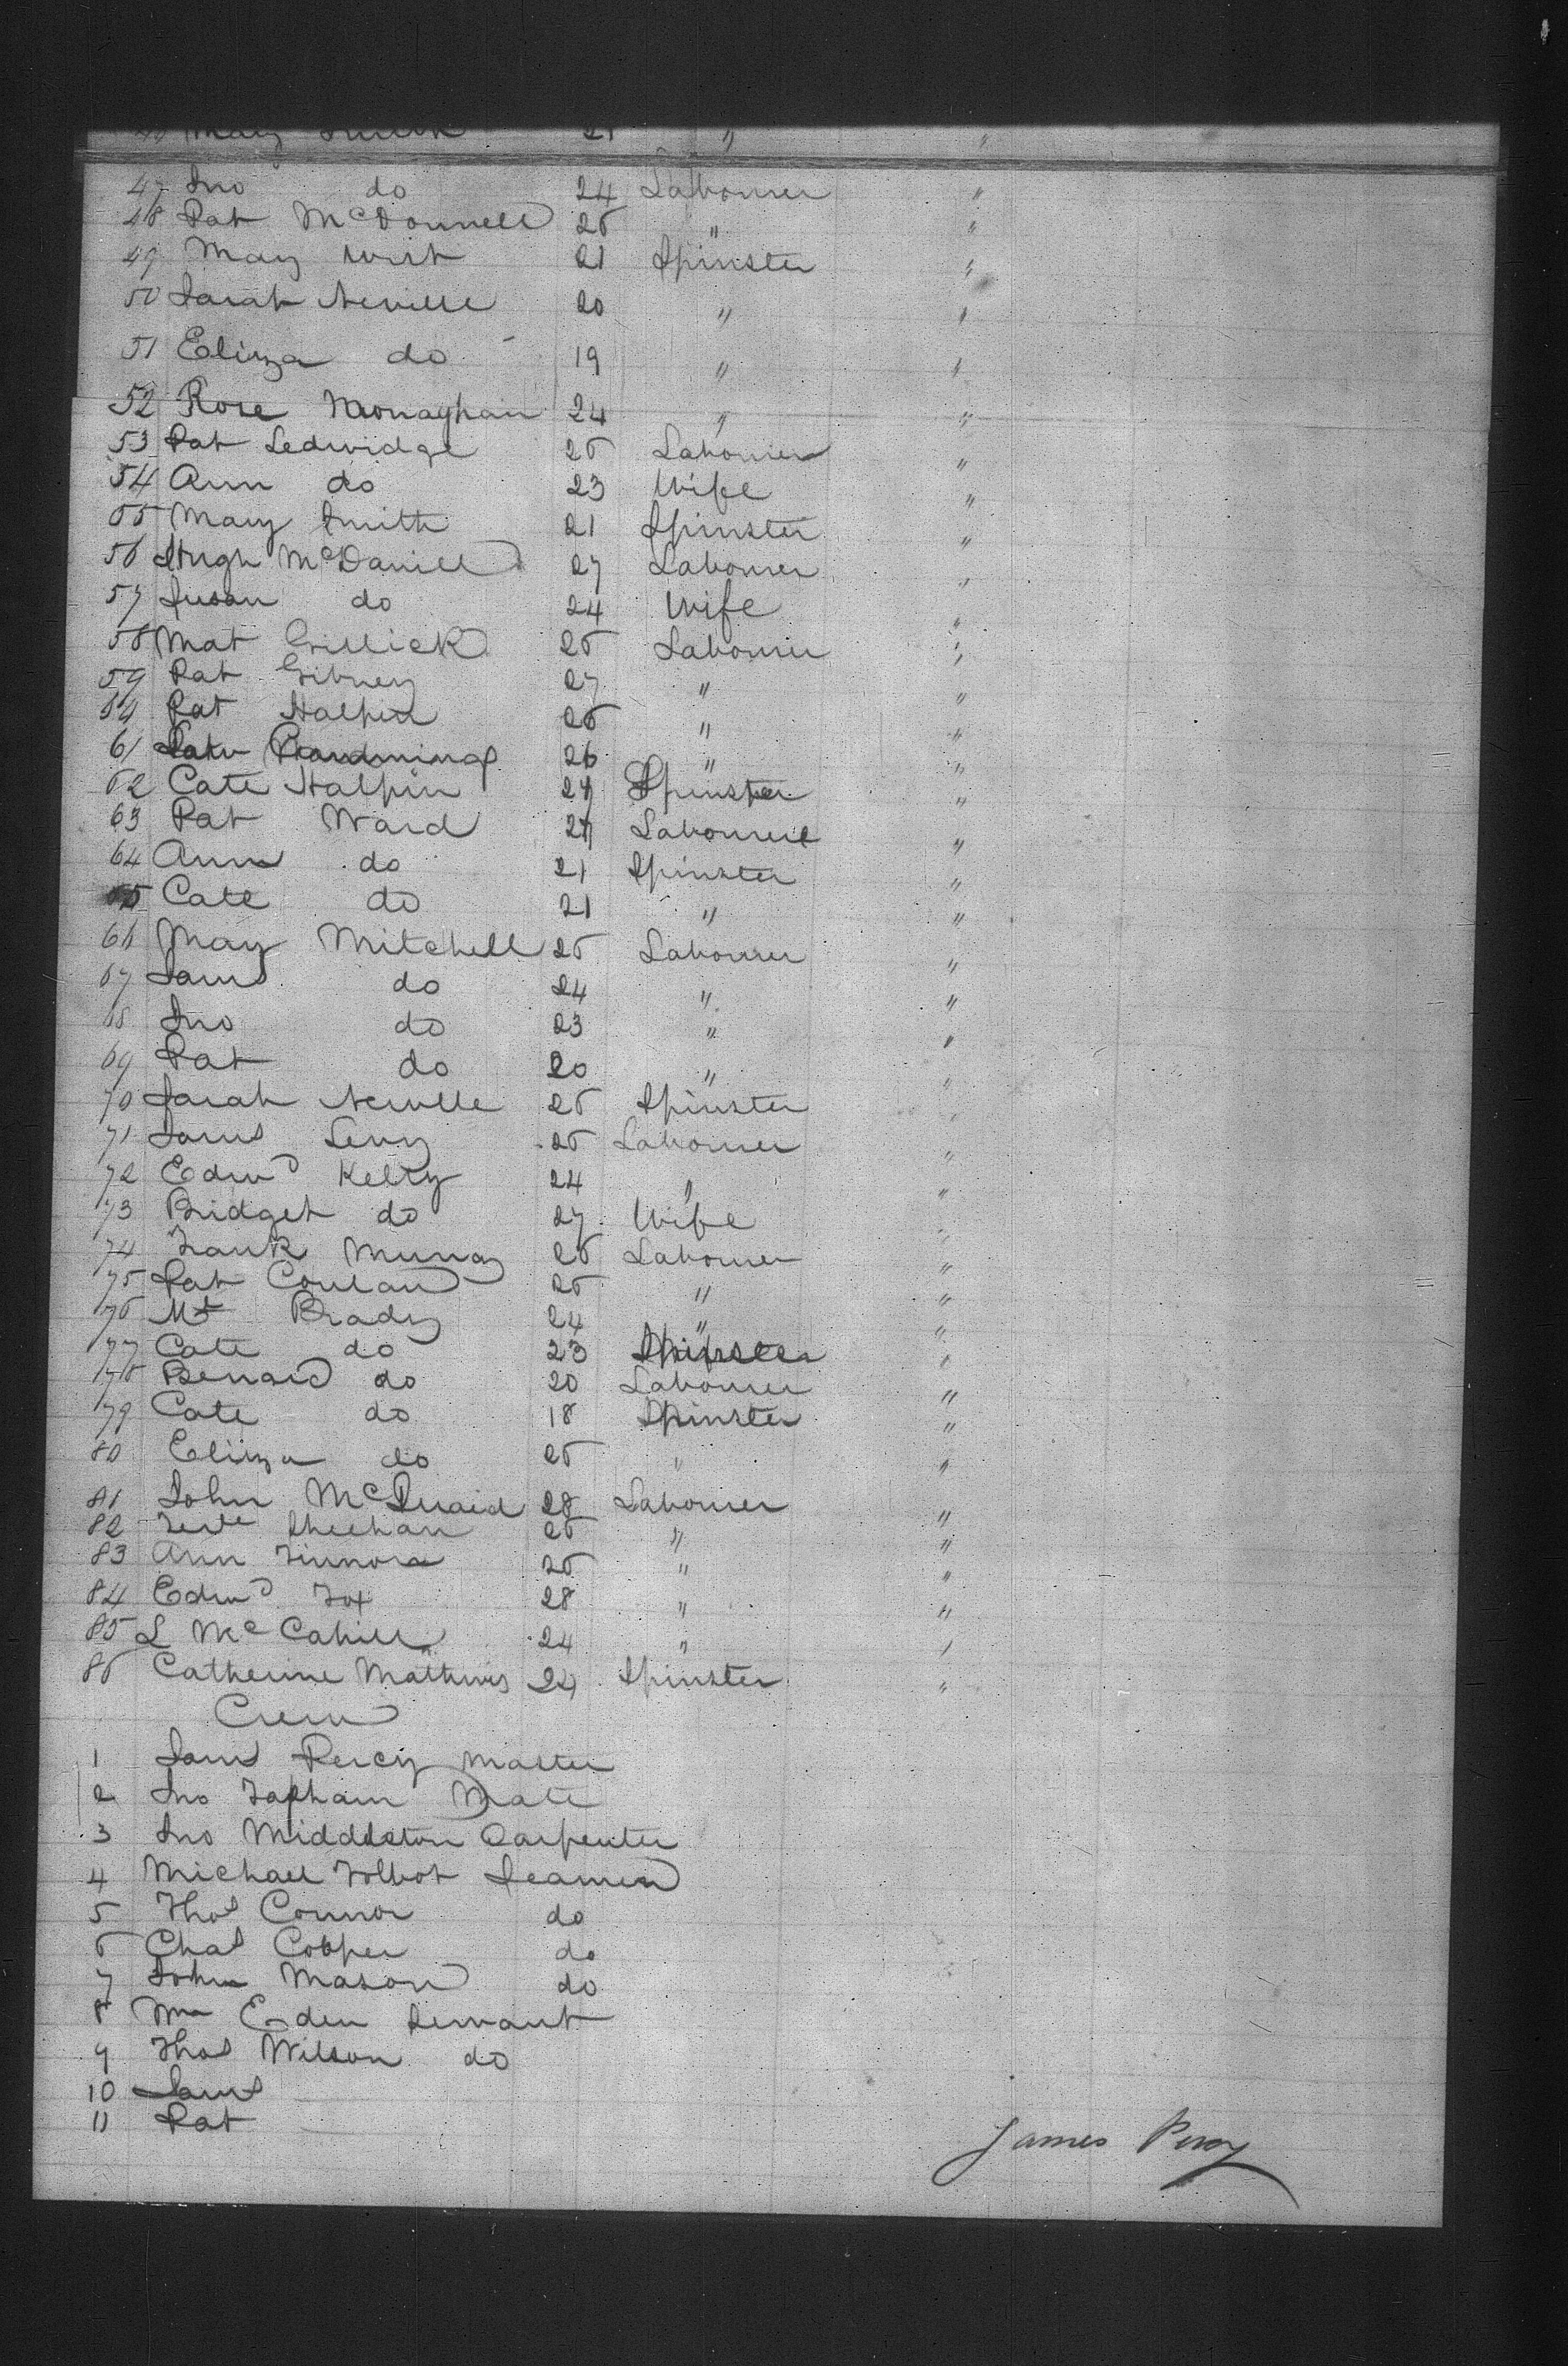 Mary Smith 21 " "
47 Jno do 24 Labourer "
48 Pat McDonnell 26 " "
49 Mary 21 Spinster "
50 Sarah Neville 20 " "
51 Eliza do 19 " "
52 Rose Monaghan 24 " "
53 Pat Ledwidge 26 Labourer "
54 Ann do 23 Wife "
55 Mary Smith 21 Spinster "
56 Hugh McDaniell 27 Labourer "
57 Susan do 24 Wife "
58 Mat Gillick 26 Labourer "
59 Pat Gibney 27 " "
Pat Halpin 26 " "
61 26 " "
62 Cate Halpin Spinster "
63 Pat Ward Labourer "
64 Ann do 21 Spinster "
65 Cate do 21 " "
66 May Mitchell 26 Labourer "
67 Jams do 24 " "
68 Jno do 23 " "
69 Pat do 20 " "
70 Sarah Neville 26 Spinster "
71 Jams Leny 26 Labourer "
72 Edwd Kelly 24 " "
73 Bridget do 27 Wife "
74 Frank Murray 26 Labourer "
75 Pat Conlan 26 " "
76 Mt Brady 24 " "
77 Cate do 23 Spinster "
78 Benard do 20 Labourer "
79 Cate do 18 Spinster "
80 Eliza do 26 " "
81 John McQuaid 28 Labourer "
82 Sheehan 26 " "
83 Ann Finnora 26 " "
84 Edwd Fox 28 " "
85 L McCahill 24 " "
86 Catherine Mathews 24 Spinster "
Crew
1 Jams Percy Master
2 Jno Tapham Mate
3 Jno Middleton Carpenter
4 Michael Tolbot Seamen
5 Thos Connor do
6 Chas Copper do
7 John Mason do
8 Wm Eden Servant
9 Thos Wilson do
10 Jams
11 Pat
James Percy